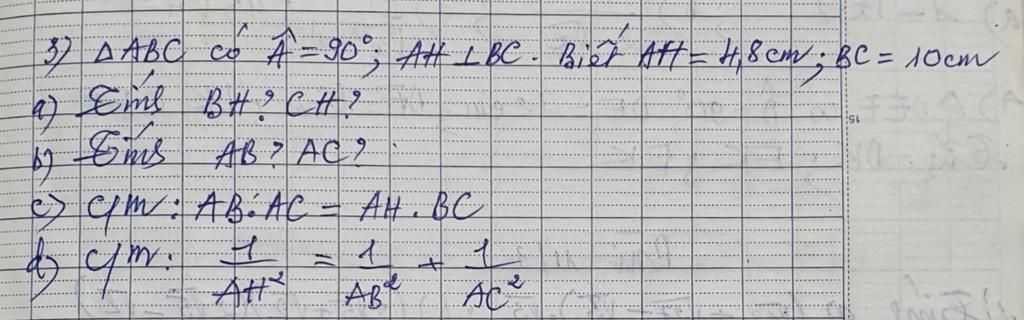 3) ΔABC có Â = 90°; AH ⊥ BC. Biết AH = 4,8cm; BC = 10cm
a) Tính BH? CH?
b) Tính AB? AC?
c) C/m: AB.AC = AH.BC
d) C/m: 1/AH² = 1/AB² + 1/AC²